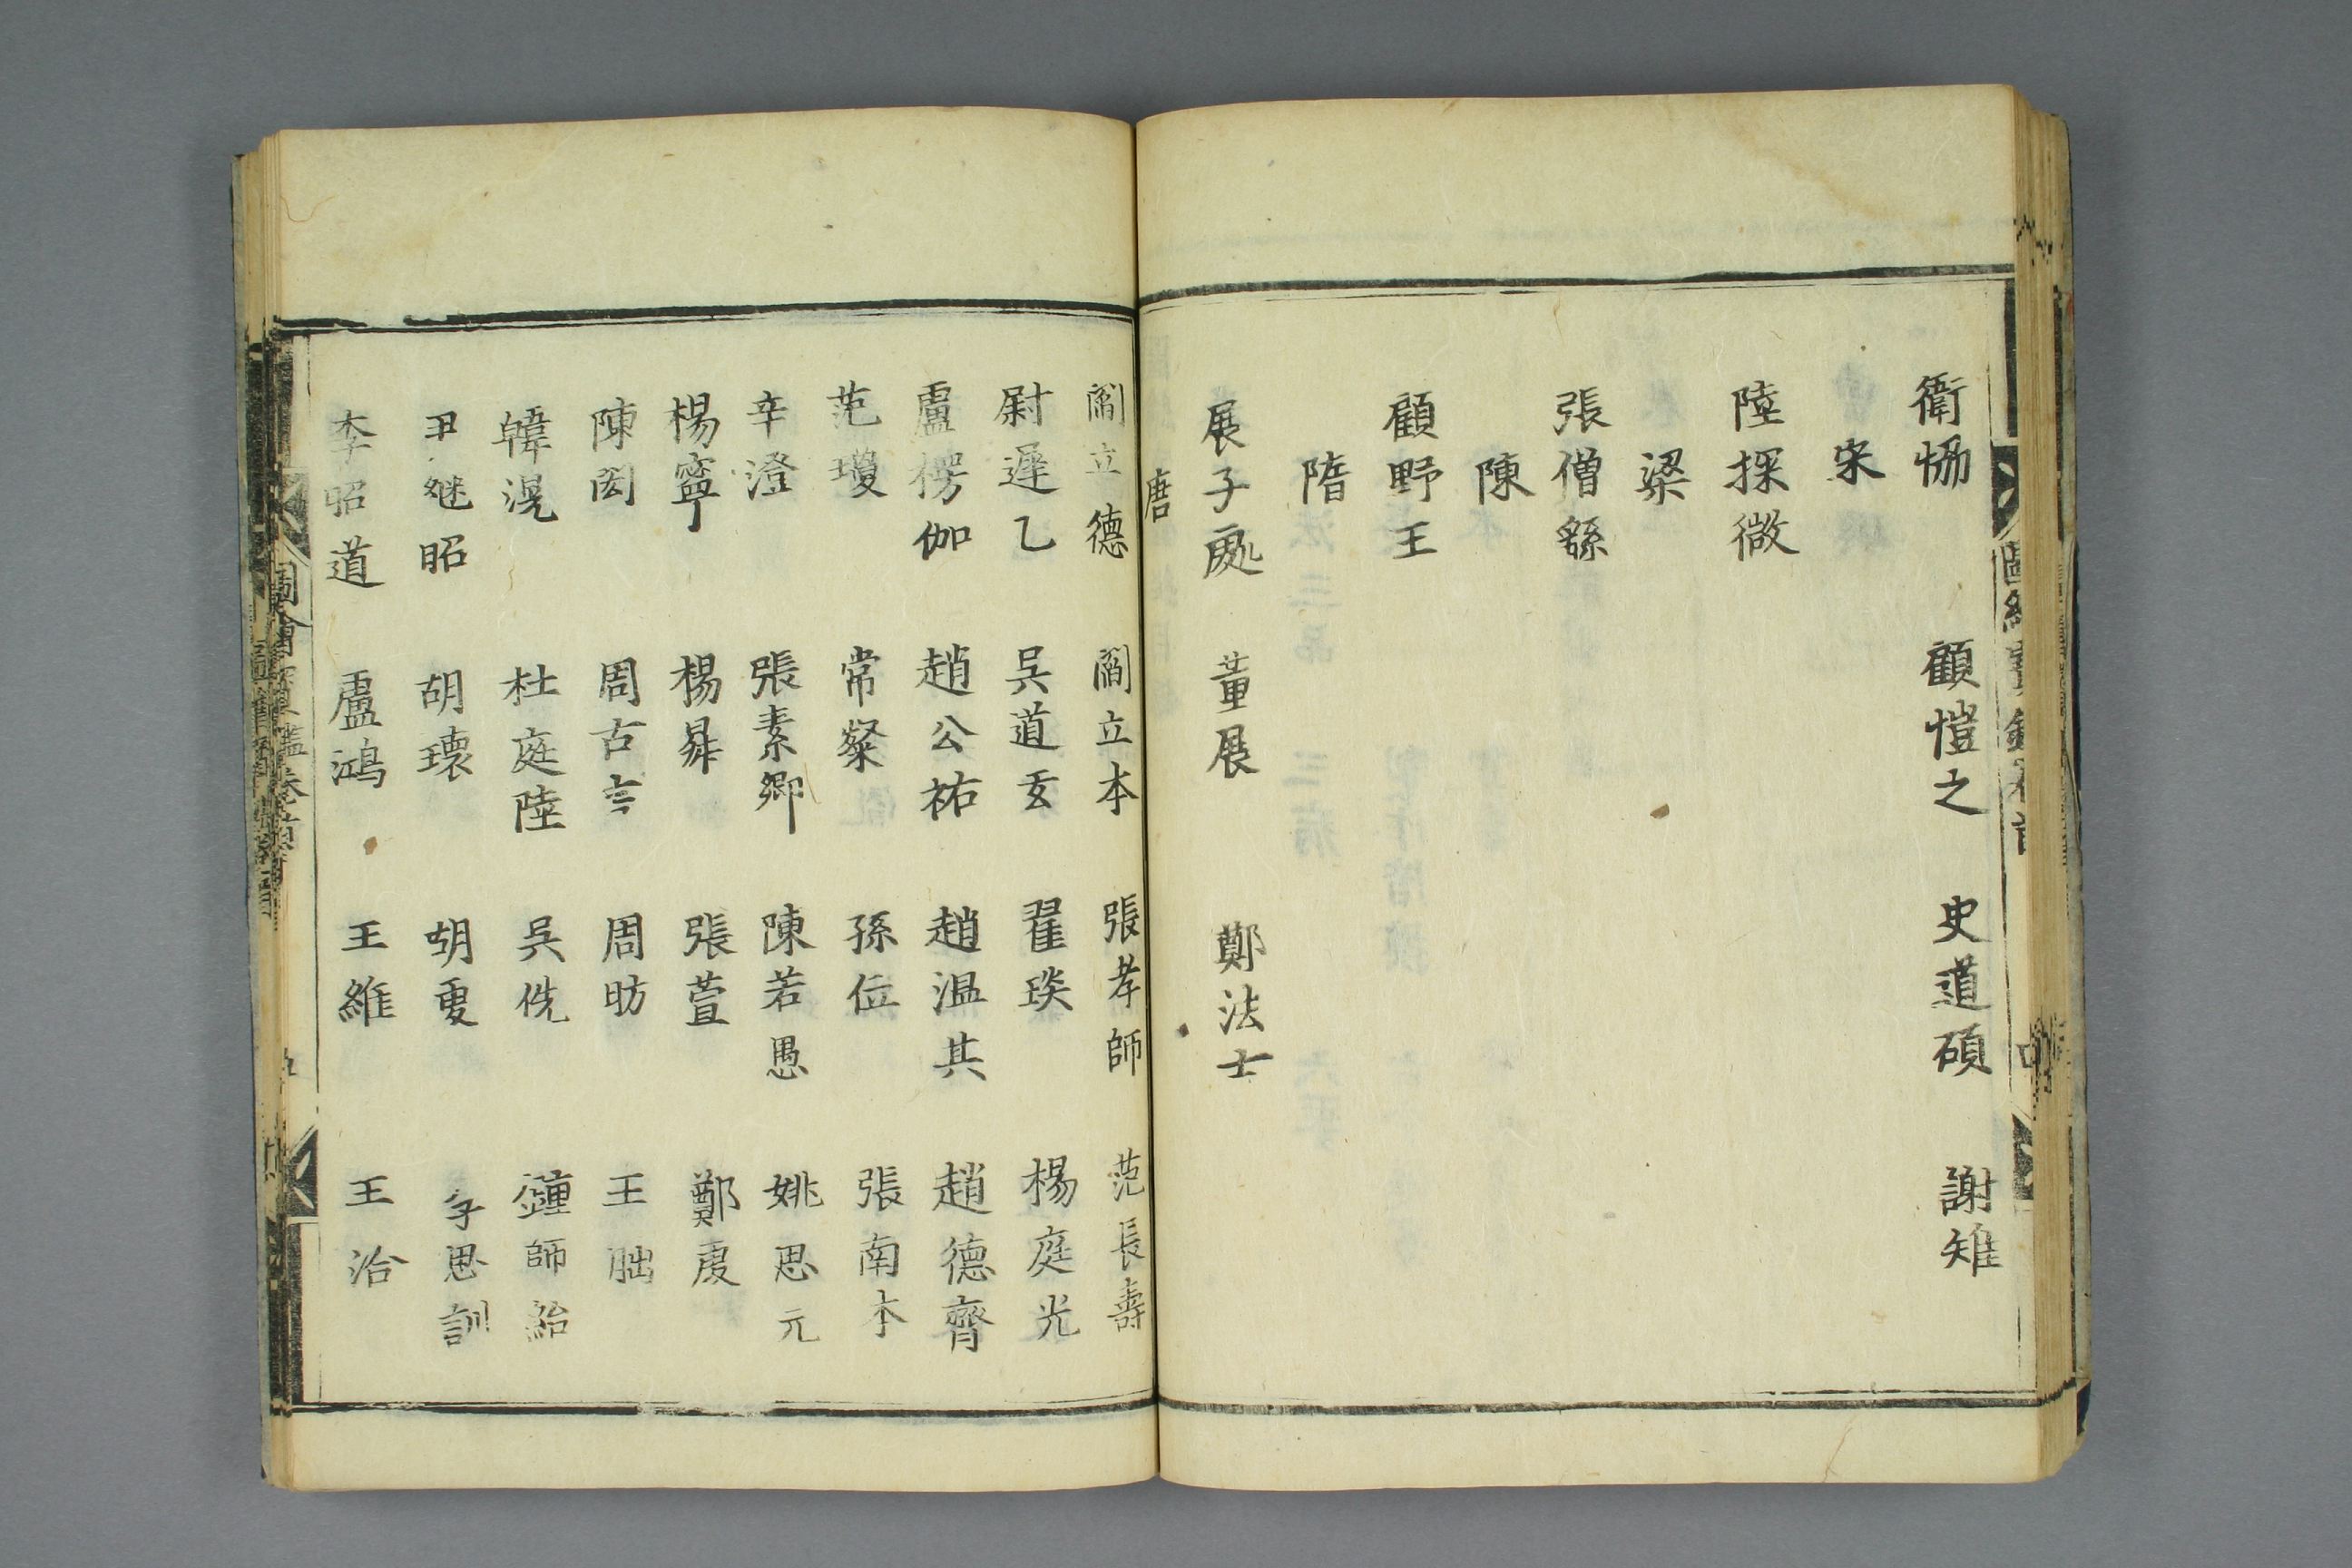 衛恊 顧愷之 史道碩 謝雉
宋
陸探微
梁
張僧繇
陳
顧野王
隋
展子䖍 董展 鄭法士
唐
閻立德 閻立本 張孝師 范長壽
尉遲乙 吳道玄 翟琰 楊庭光
盧楞伽 趙公祐 趙温其 趙德齊
范瓊 常粲 孫位 張南本
辛澄 張素卿 陳若愚 姚思元
楊寧 楊昇 張萱 鄭虔
陳閎 周古言 周昉 王朏
韓滉 杜庭陸 吳侁 鍾師紿
尹継昭 胡瓌 胡䖍 李思訓
李昭道 盧鴻 王維 王洽